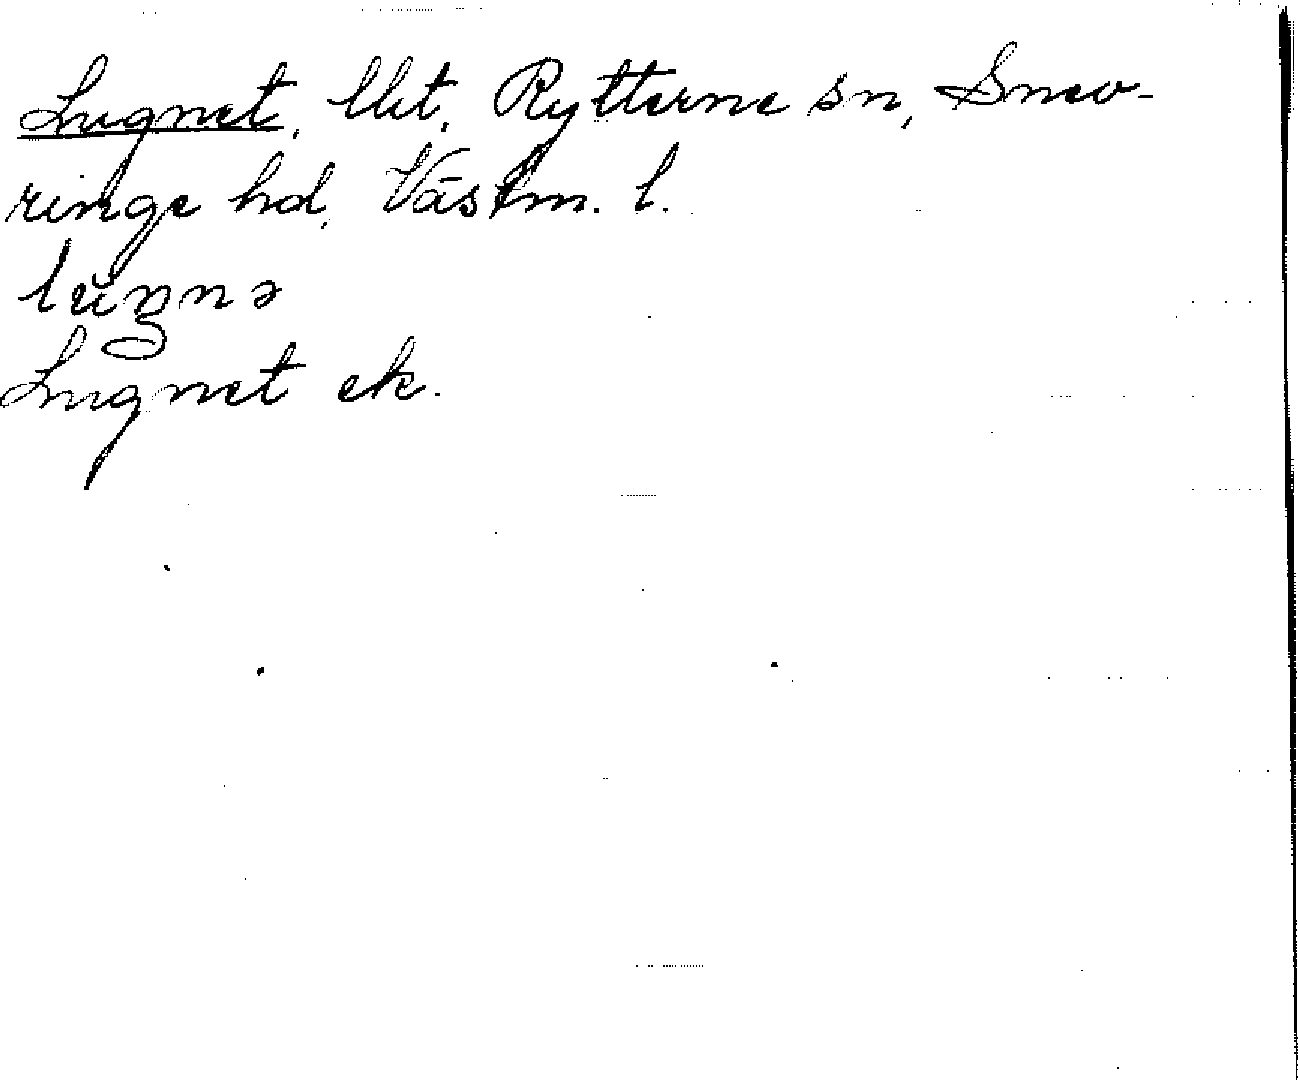 Lugnet, lht, Rytterne sn, Snev-
ringe hd, Västm. l.
Lugnet ek.